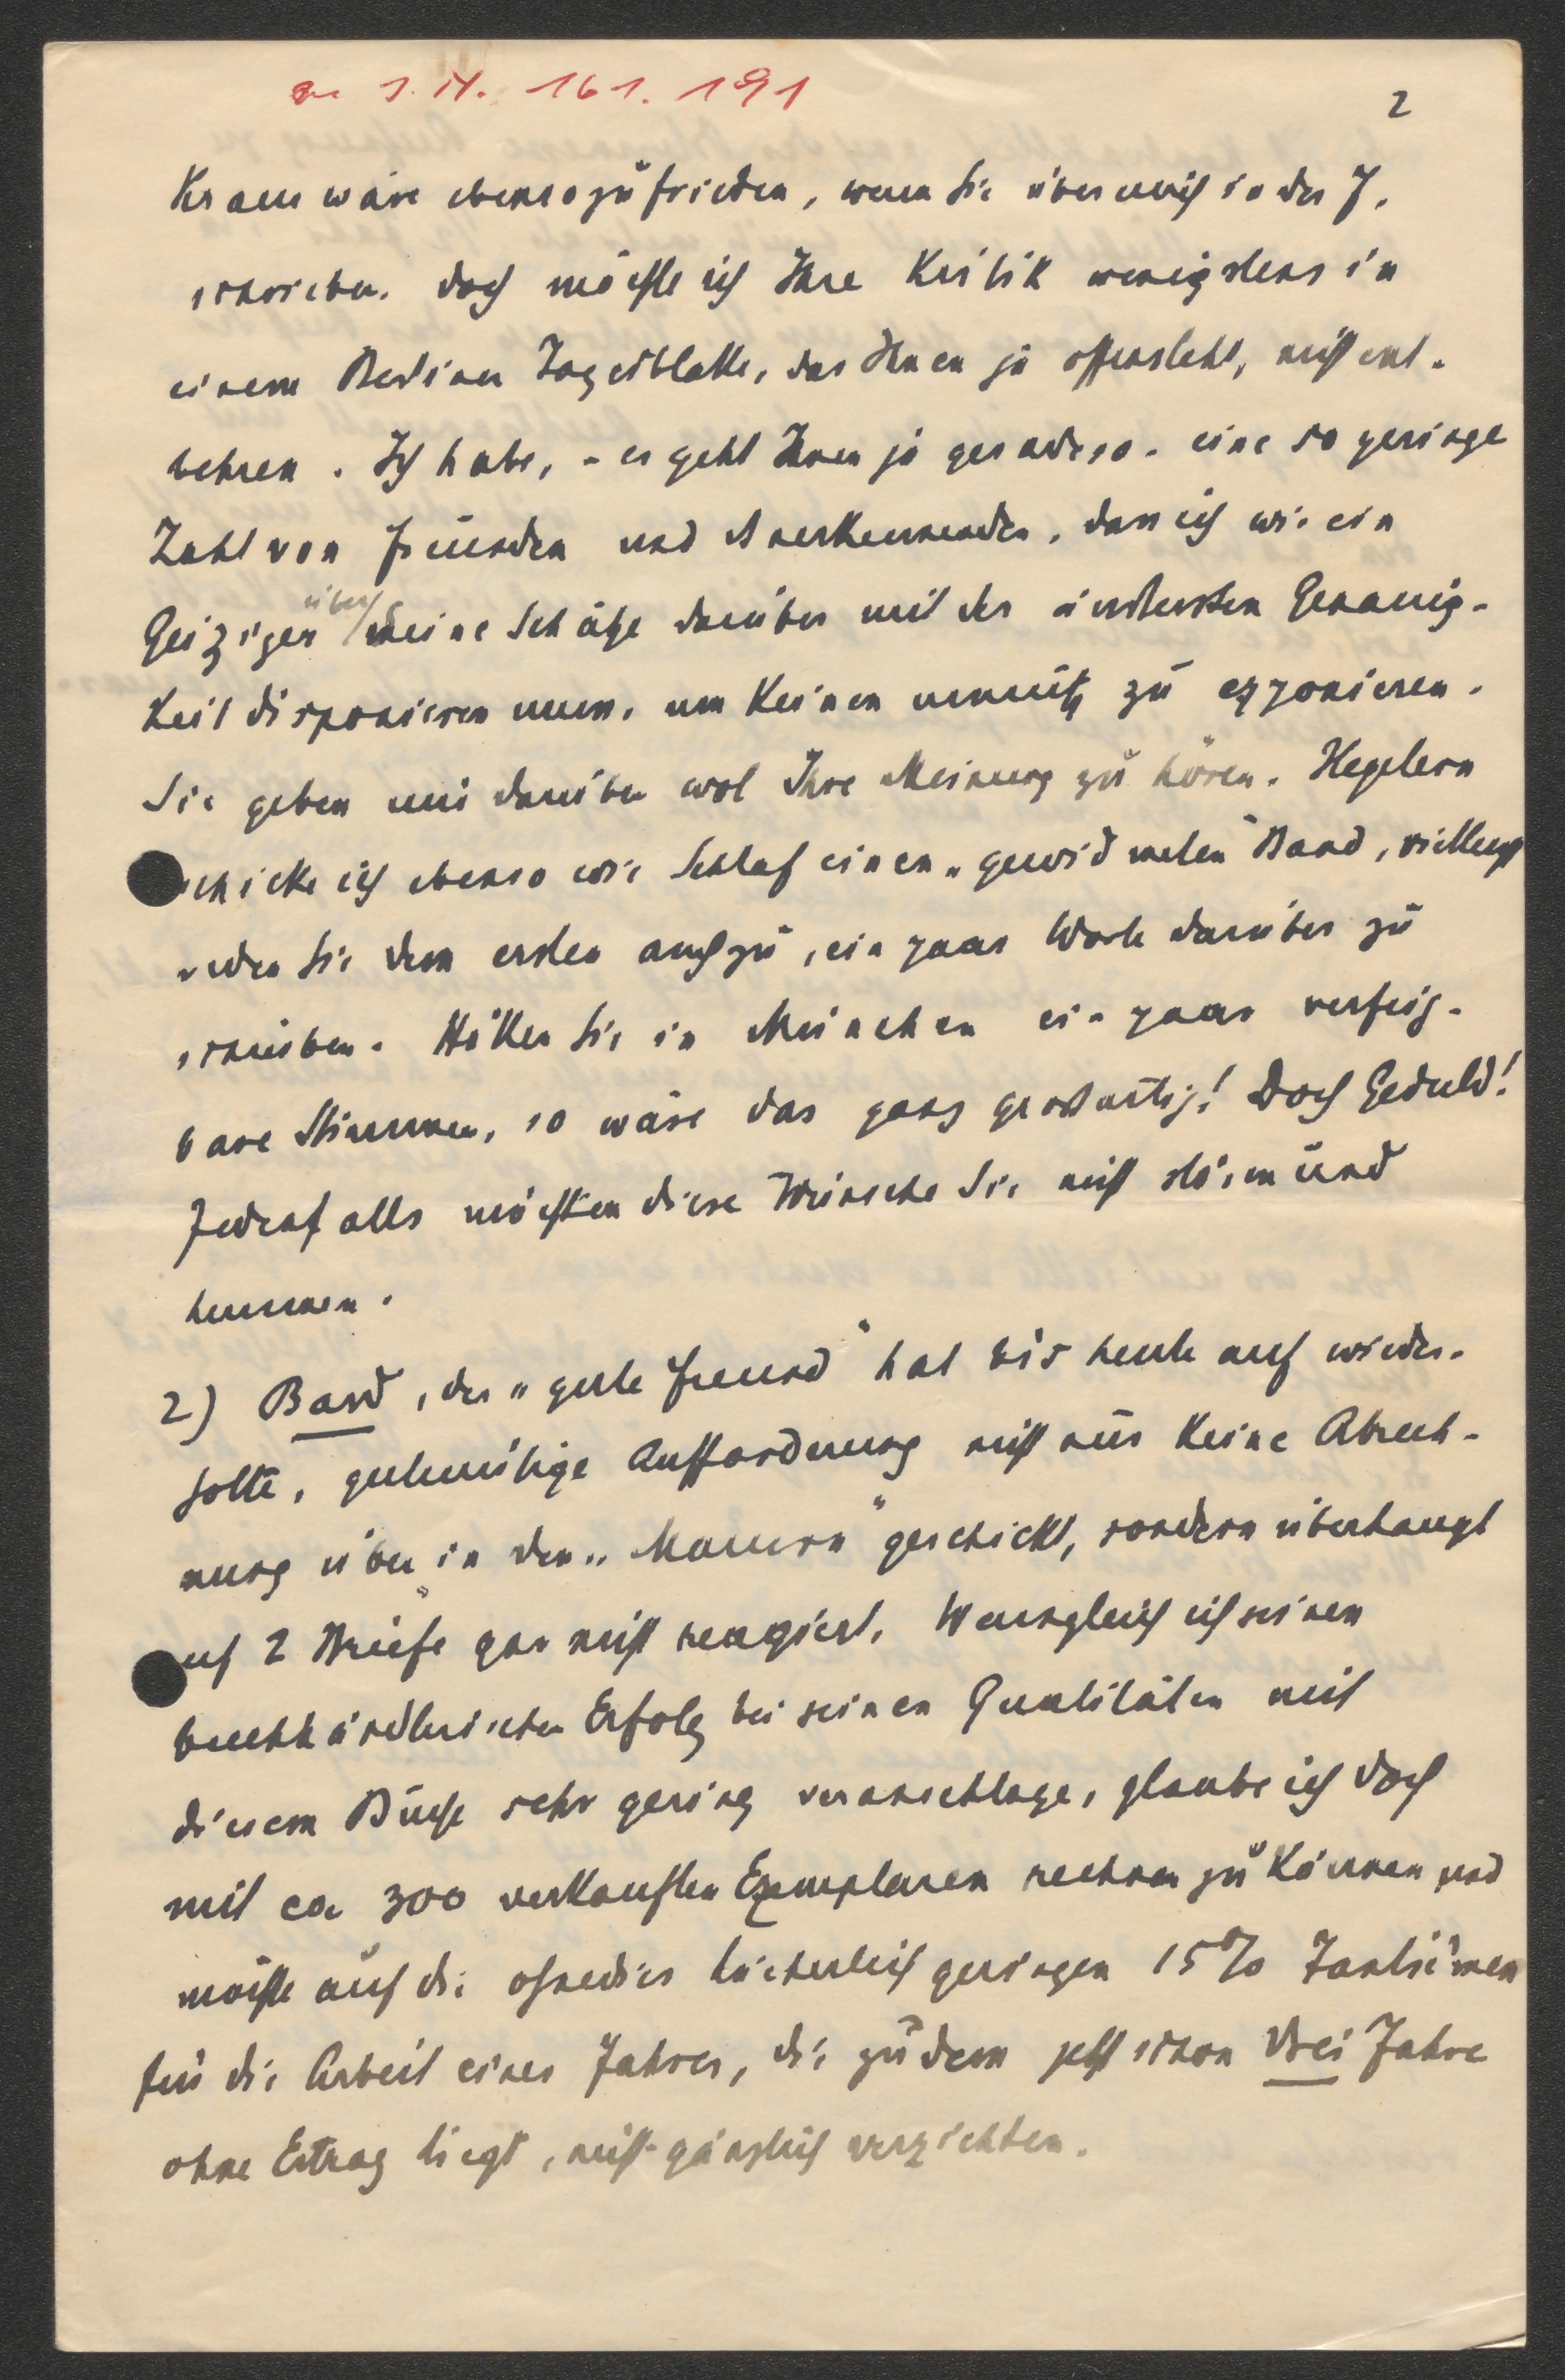 I.N. 161.191
2
Kraus wäre ebenso zufrieden, wenn Sie über mich in der J.
schrieben. Doch möchte ich Ihre Kritik wenigstens in
einem Berliner Tagesblatte, das Ihnen ja offensteht, nicht ent-
behren. Ich habe, - es geht Ihnen ja geradeso - eine so geringe
Zahl von Freunden und Anerkennenden, dass ich wie ein
Geiziger über meine Schätze darüber mit der äussersten Genauig-
keit disponieren muss, um keinen unnütz zu exponieren.
Sie geben mir darüber wol Ihre Meinung zu hören. Hegelern
schicke ich ebenso wie Schlaf einen „gewidmeten“ Band, vielleicht
reden Sie dem ersten auch zu, ein paar Worte darüber zu
schreiben. Hätten Sie in München ein paar verfüg-
bare Stimmen, so wäre das ganz grossartig! Doch Geduld!
Jedenfalls möchten diese Wünsche Sie nicht stören und
hemmen.
2) Bard, der „gute Freund“ hat bis heute auf wieder-
holte, gutmütige Aufforderung nicht nur keine Abrech-
nung über „in den Mauern“ geschickt, sondern überhaupt
auf 2 Briefe gar nicht reagiert. Wenngleich ich seinen
buchhändlerischen Erfolg bei seinen Qualitäten mit
diesem Buche sehr gering veranschlage, glaube ich doch
mit ca 300 verkauften Exemplaren rechnen zu können und
möchte auf die ohnedies lächerlich geringen 15% Tantiemen
für die Arbeit eines Jahres, die zudem jetzt schon drei Jahre
ohne Ertrag liegt, nicht gänzlich verzichten.